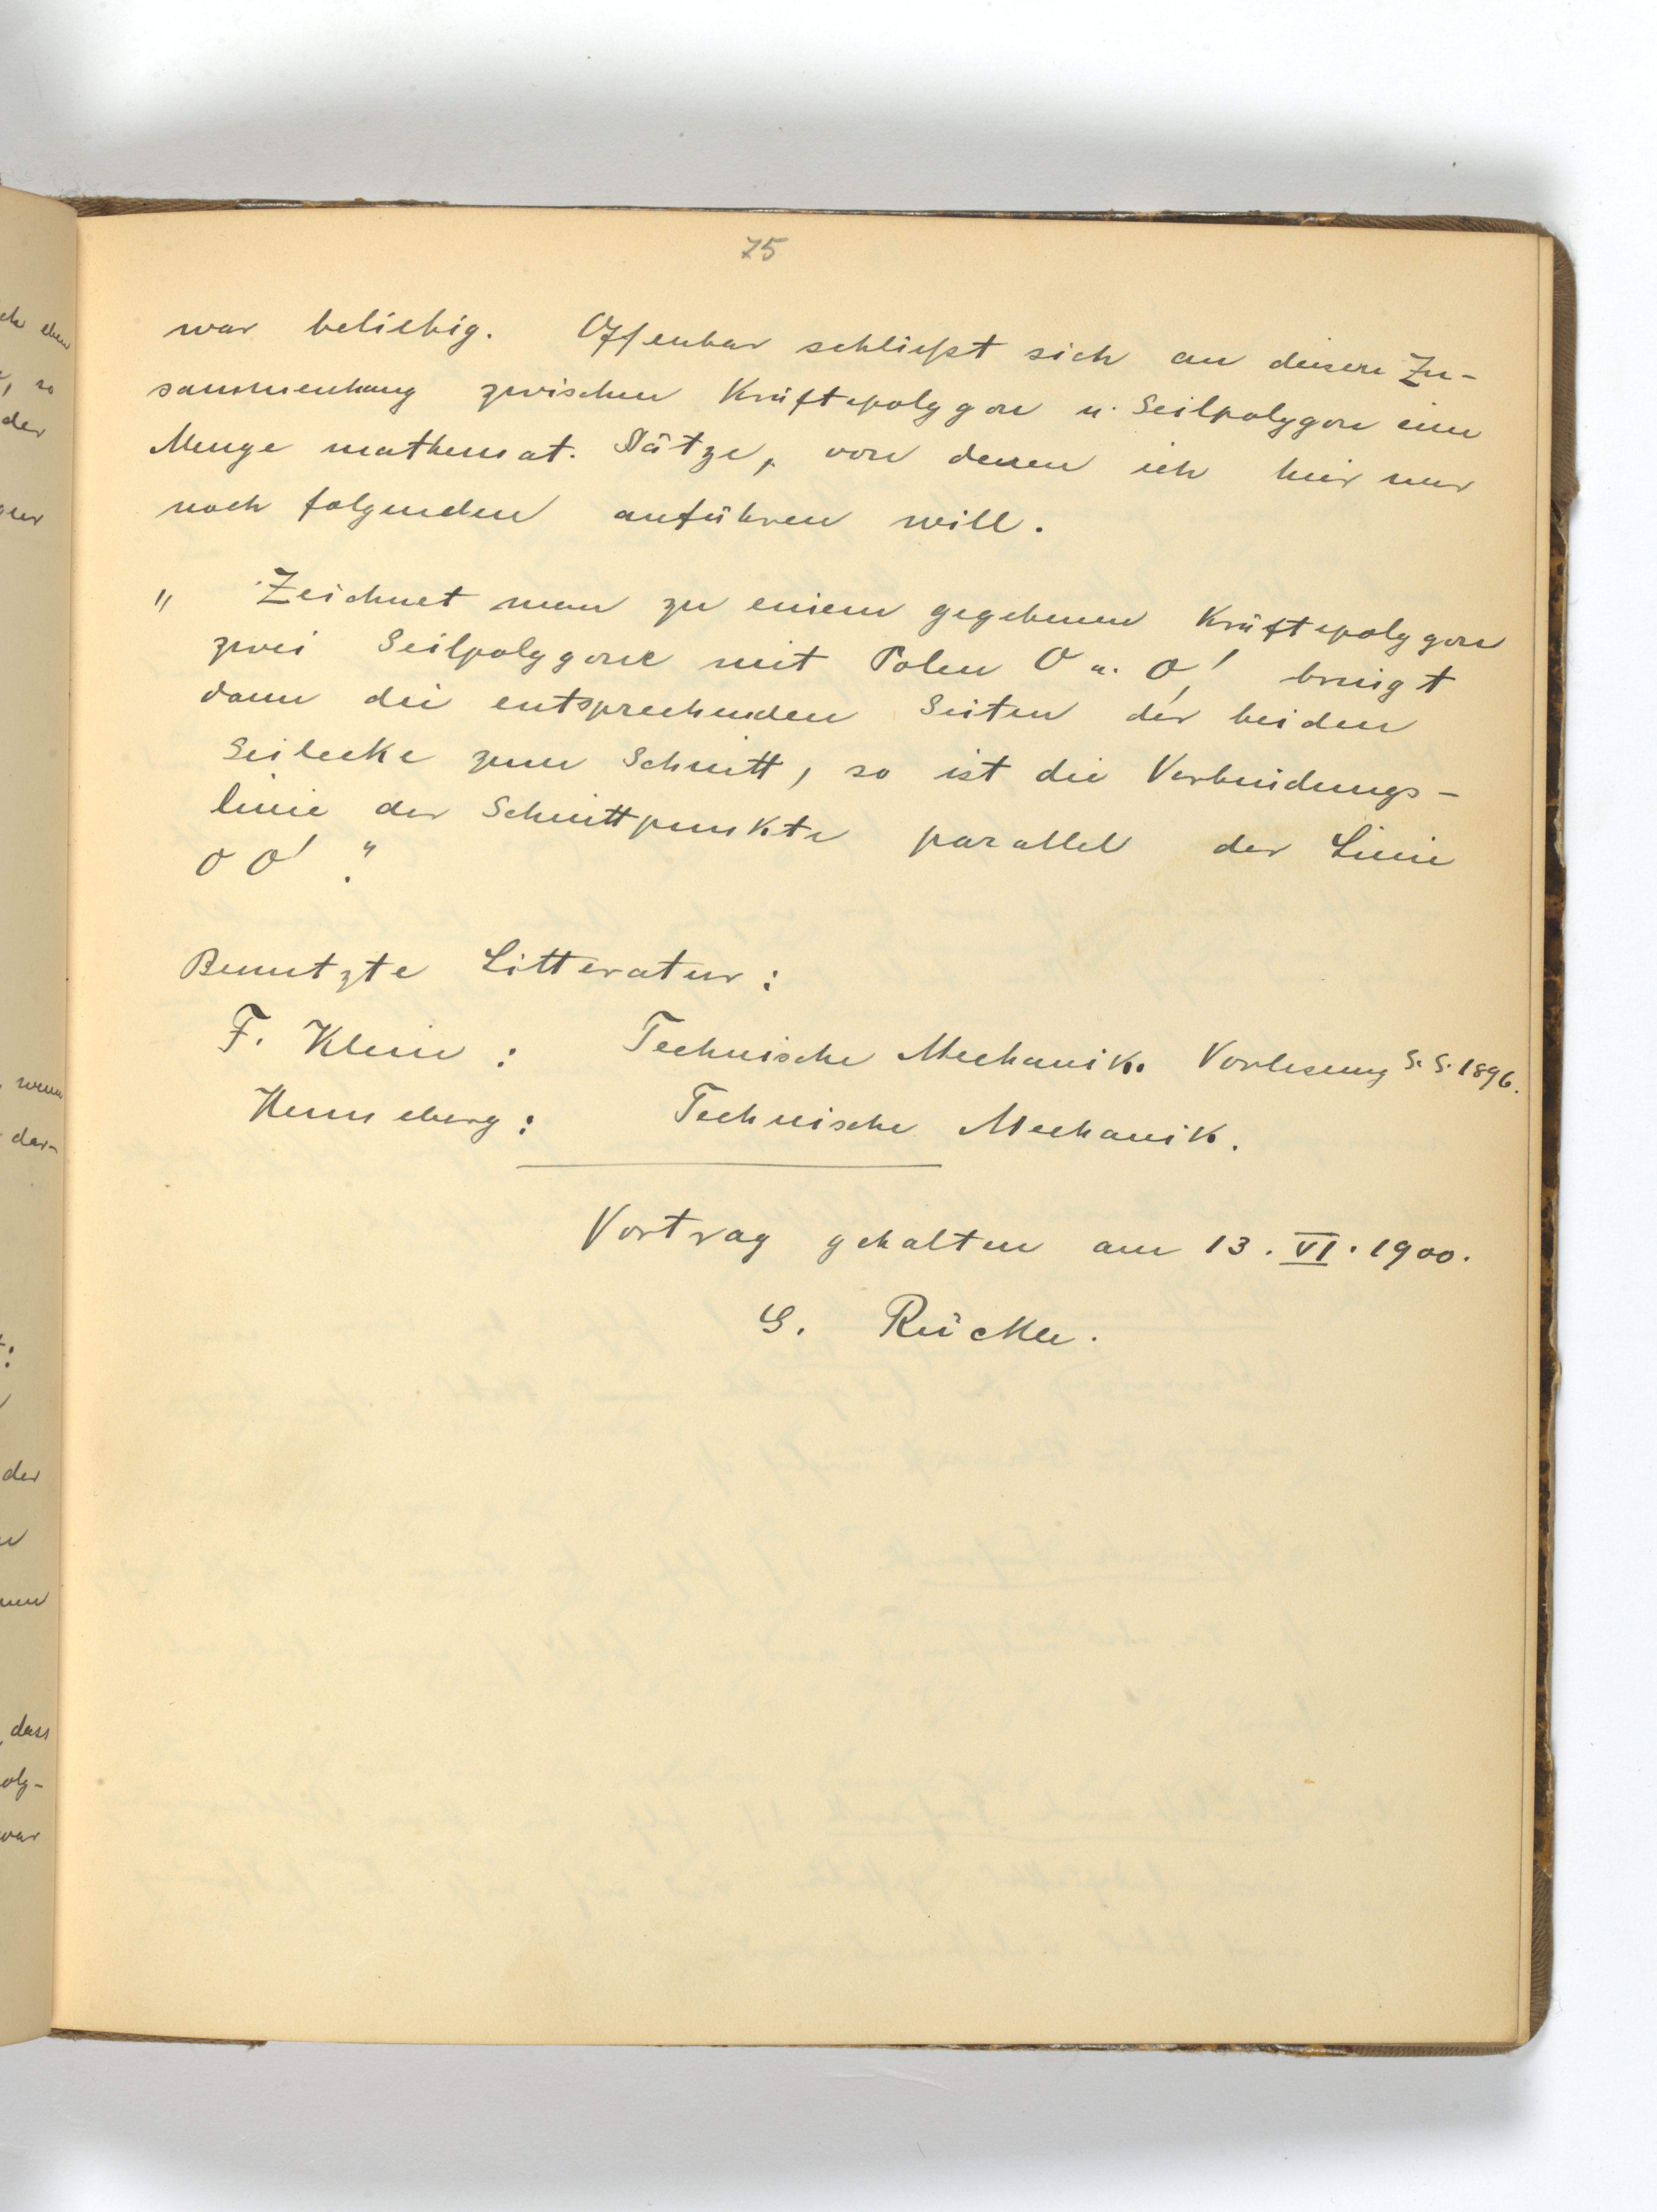 75
war beliebig. Offenbar schließt sich an diesen Zu-
sammenhang zwischen Kräftepolygon u. Seilpolygon eine
Menge mathemat. Sätze, von denen ich hier nur
noch folgenden anführen will.
" Zeichnet man zu einem gegebenen Kräftepolygon
zwei Seilpolygone mit Polen O u. O', bringt
dann die entsprechenden Seiten der beiden
Seilecke zum Schnitt, so ist die Verbindungs-
linie der Schnittpunkte parallel der Linie
O O'."
Benutzte Litteratur:
F. Klein: Technische Mechanik. Vorlesung S. S. 1896.
Henneberg: Technische Mechanik.
Vortrag gehalten am 13. VI. 1900.
G. Rückle.
der
dar-
der
dass
olg-
war